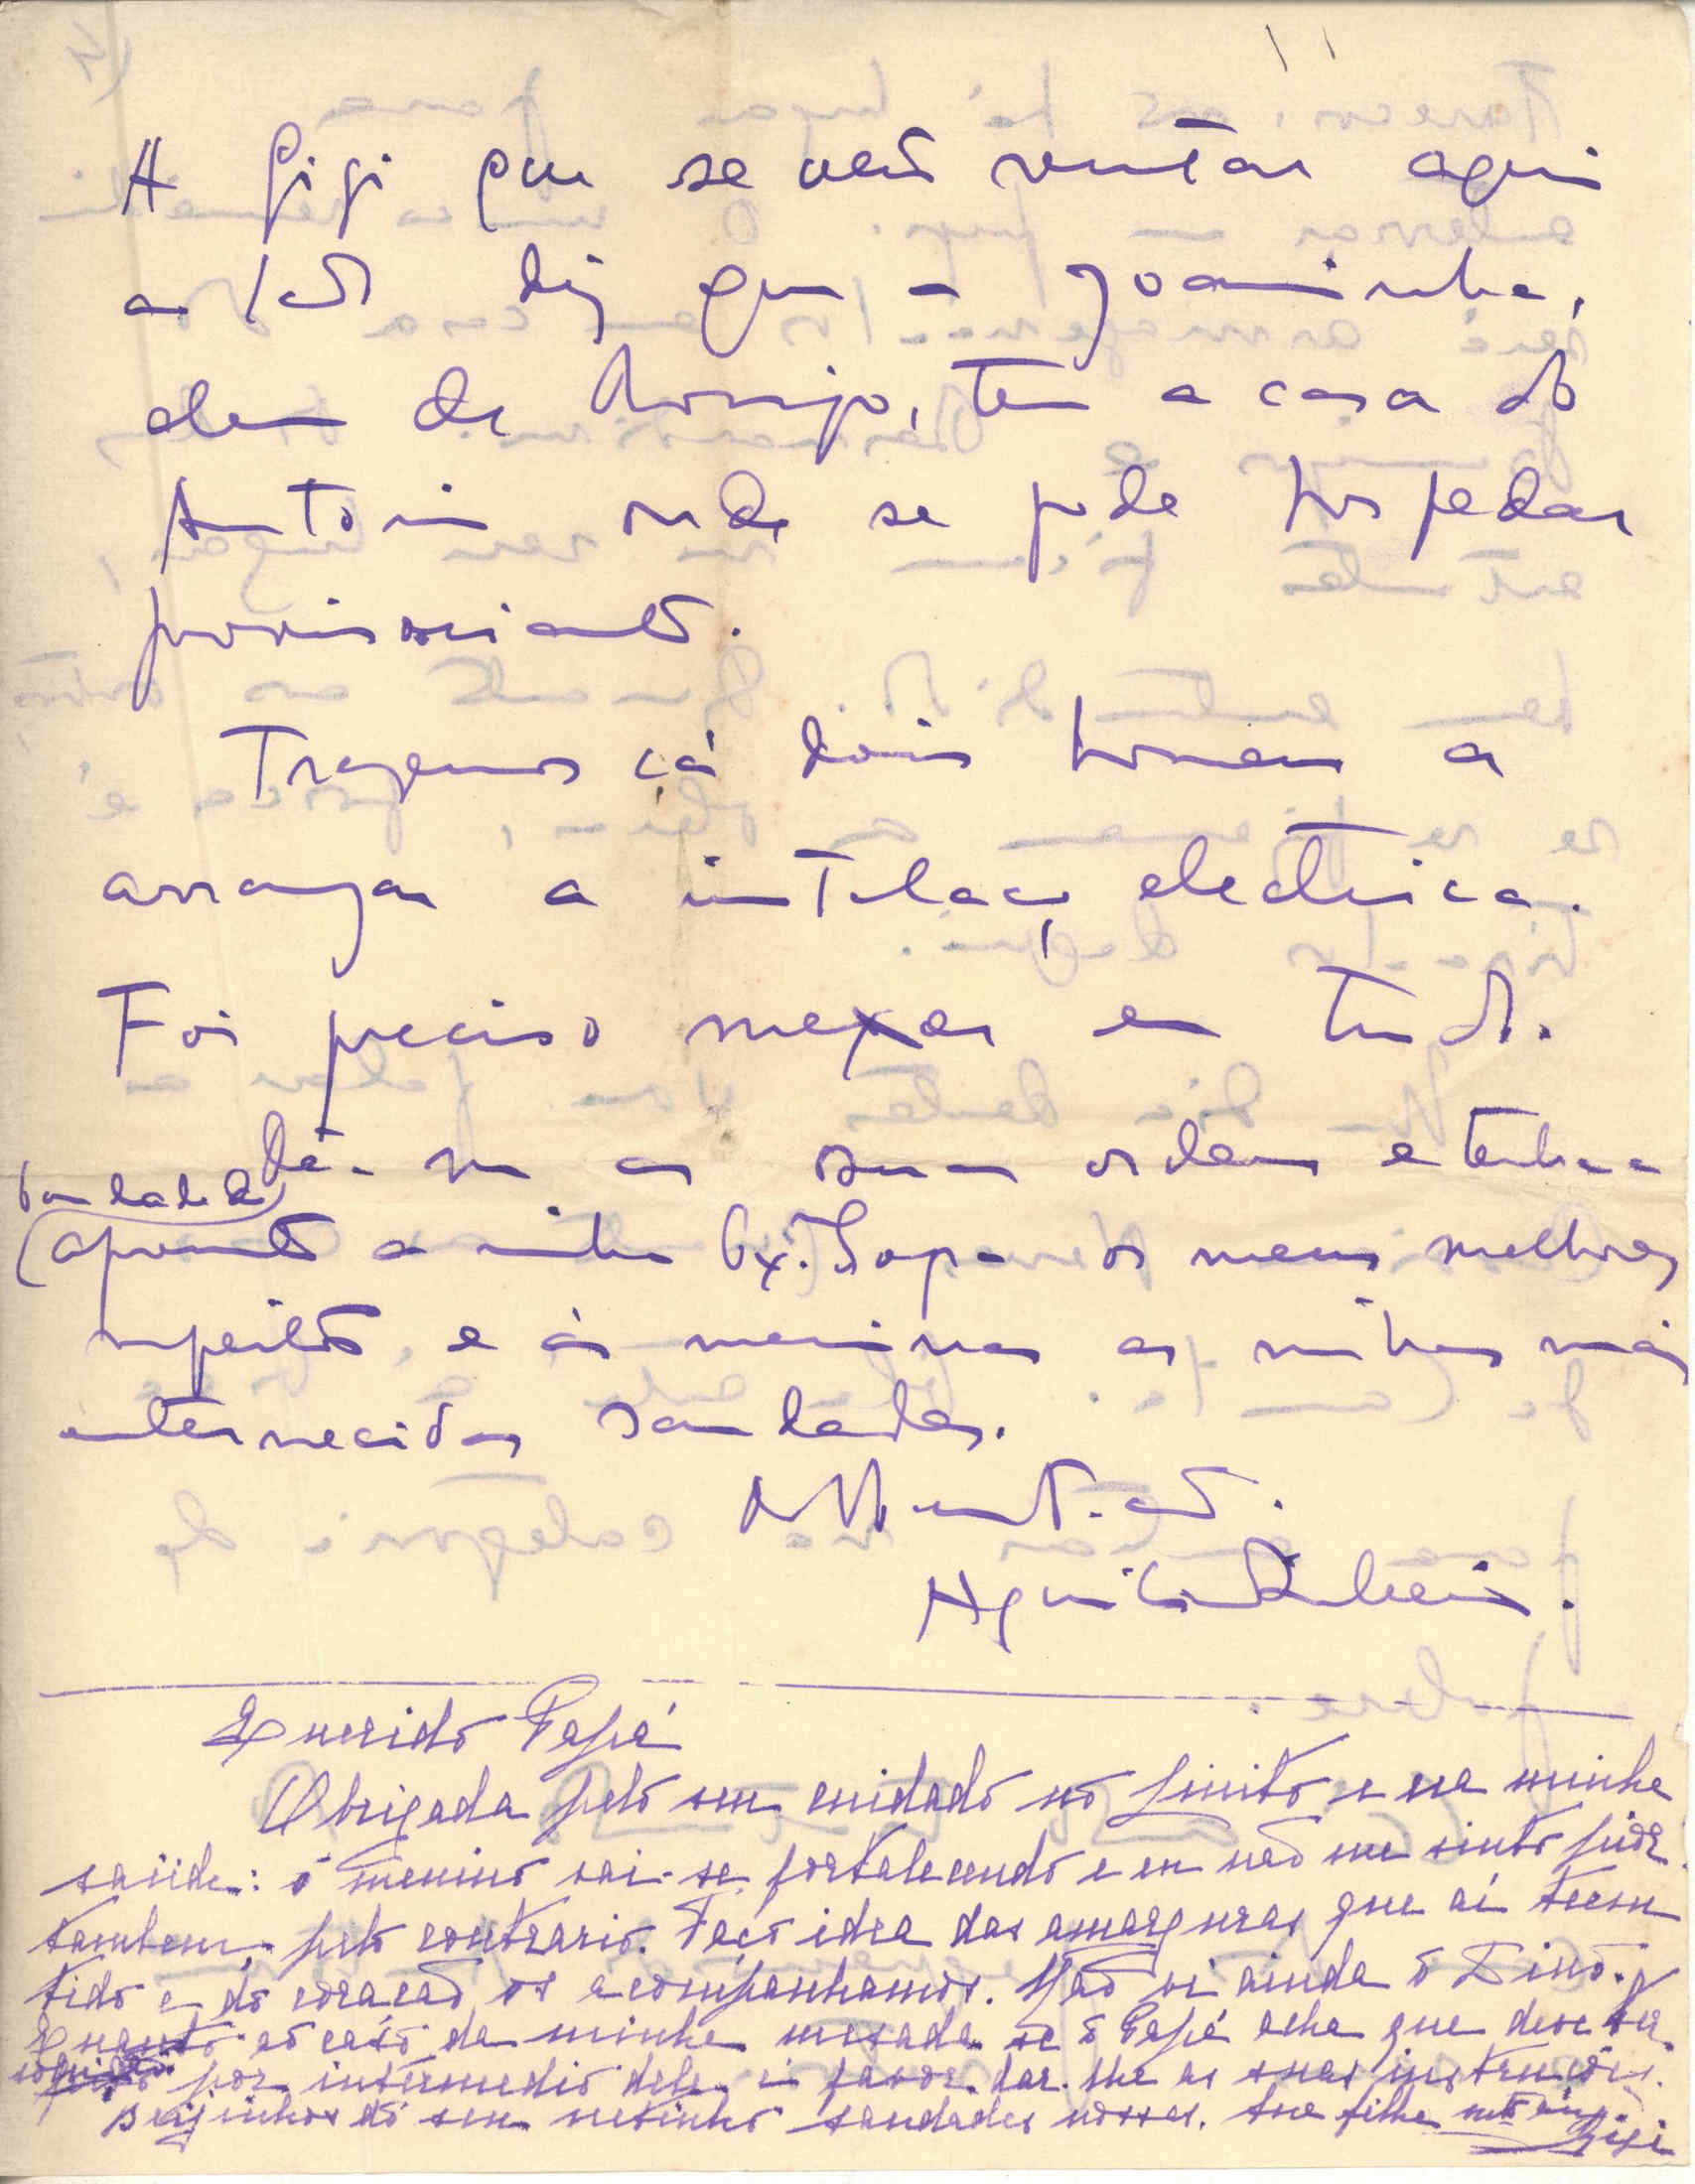 A Gigi que se veio sentar aqui
ao lado diz que a Joaninha,
alem da Arrojo, tem a casa do
Antonio onde se pode hospedar
provisoriamente.
Trazemos cá dois homens a
arranjar a instalação electrica.
Foi preciso mexer em tudo.
Dê-me as suas ordens e tenha a
bondade de
apresento a minha Ex. Sogra os meus melhores
respeitos e ás meninas as minhas mais
enternecidas saudades.
Aquilino Ribeiro.
Querido Papá
Obrigada pelo seu cuidado no Linito e na minha
saúde: o menino vai-se fortalecendo e eu não me sinto pior
tambem pelo contrario. Faço idea das amarguras que aí teem
tido e do coração os acompanhamos. Não vi ainda o Dino.
Quanto ao caso da minha mesada se o Papá acha que deve ser
por intermedio dele é favor dar-lhe as suas instruções.
Beijinhos do seu netinho saudades nossas. Sua filha mto amiga
Gigi